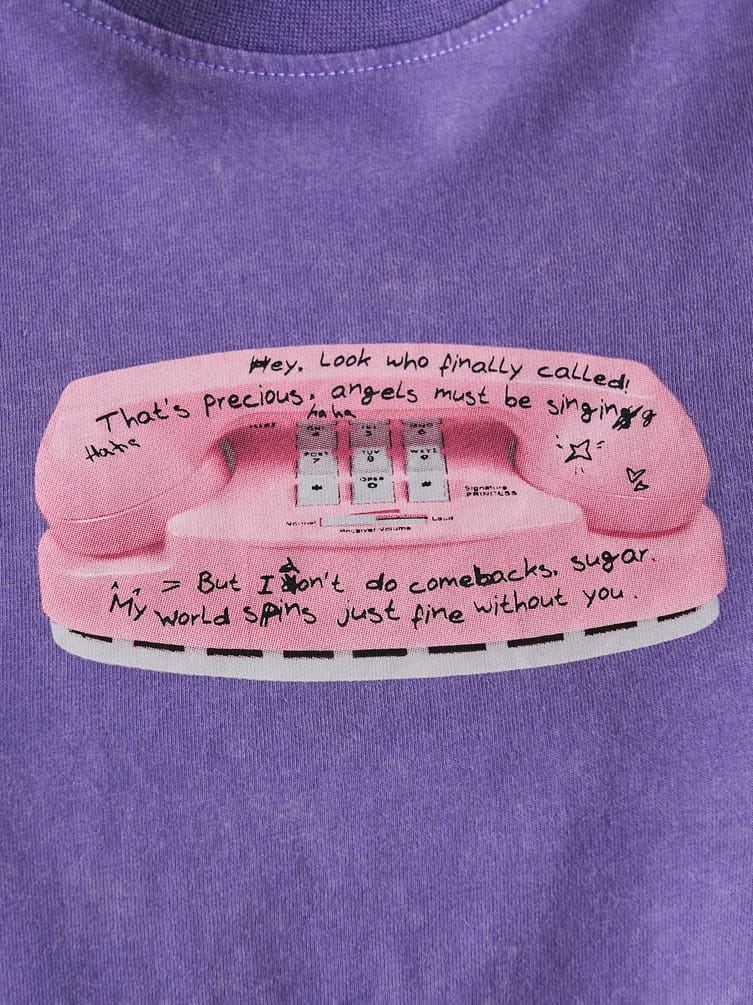 Hey, Look who finally called!
That's precious, angels must be singing
haha
Haha
GHI 4 JKL 5 MNO 6
PQRS 7 TUV 8 WXYZ 9
* OPER 0 #
Signature
PRINCESS
Normal Loud
Receiver Volume
= But I don't do comebacks, sugar.
My world spins just fine without you.